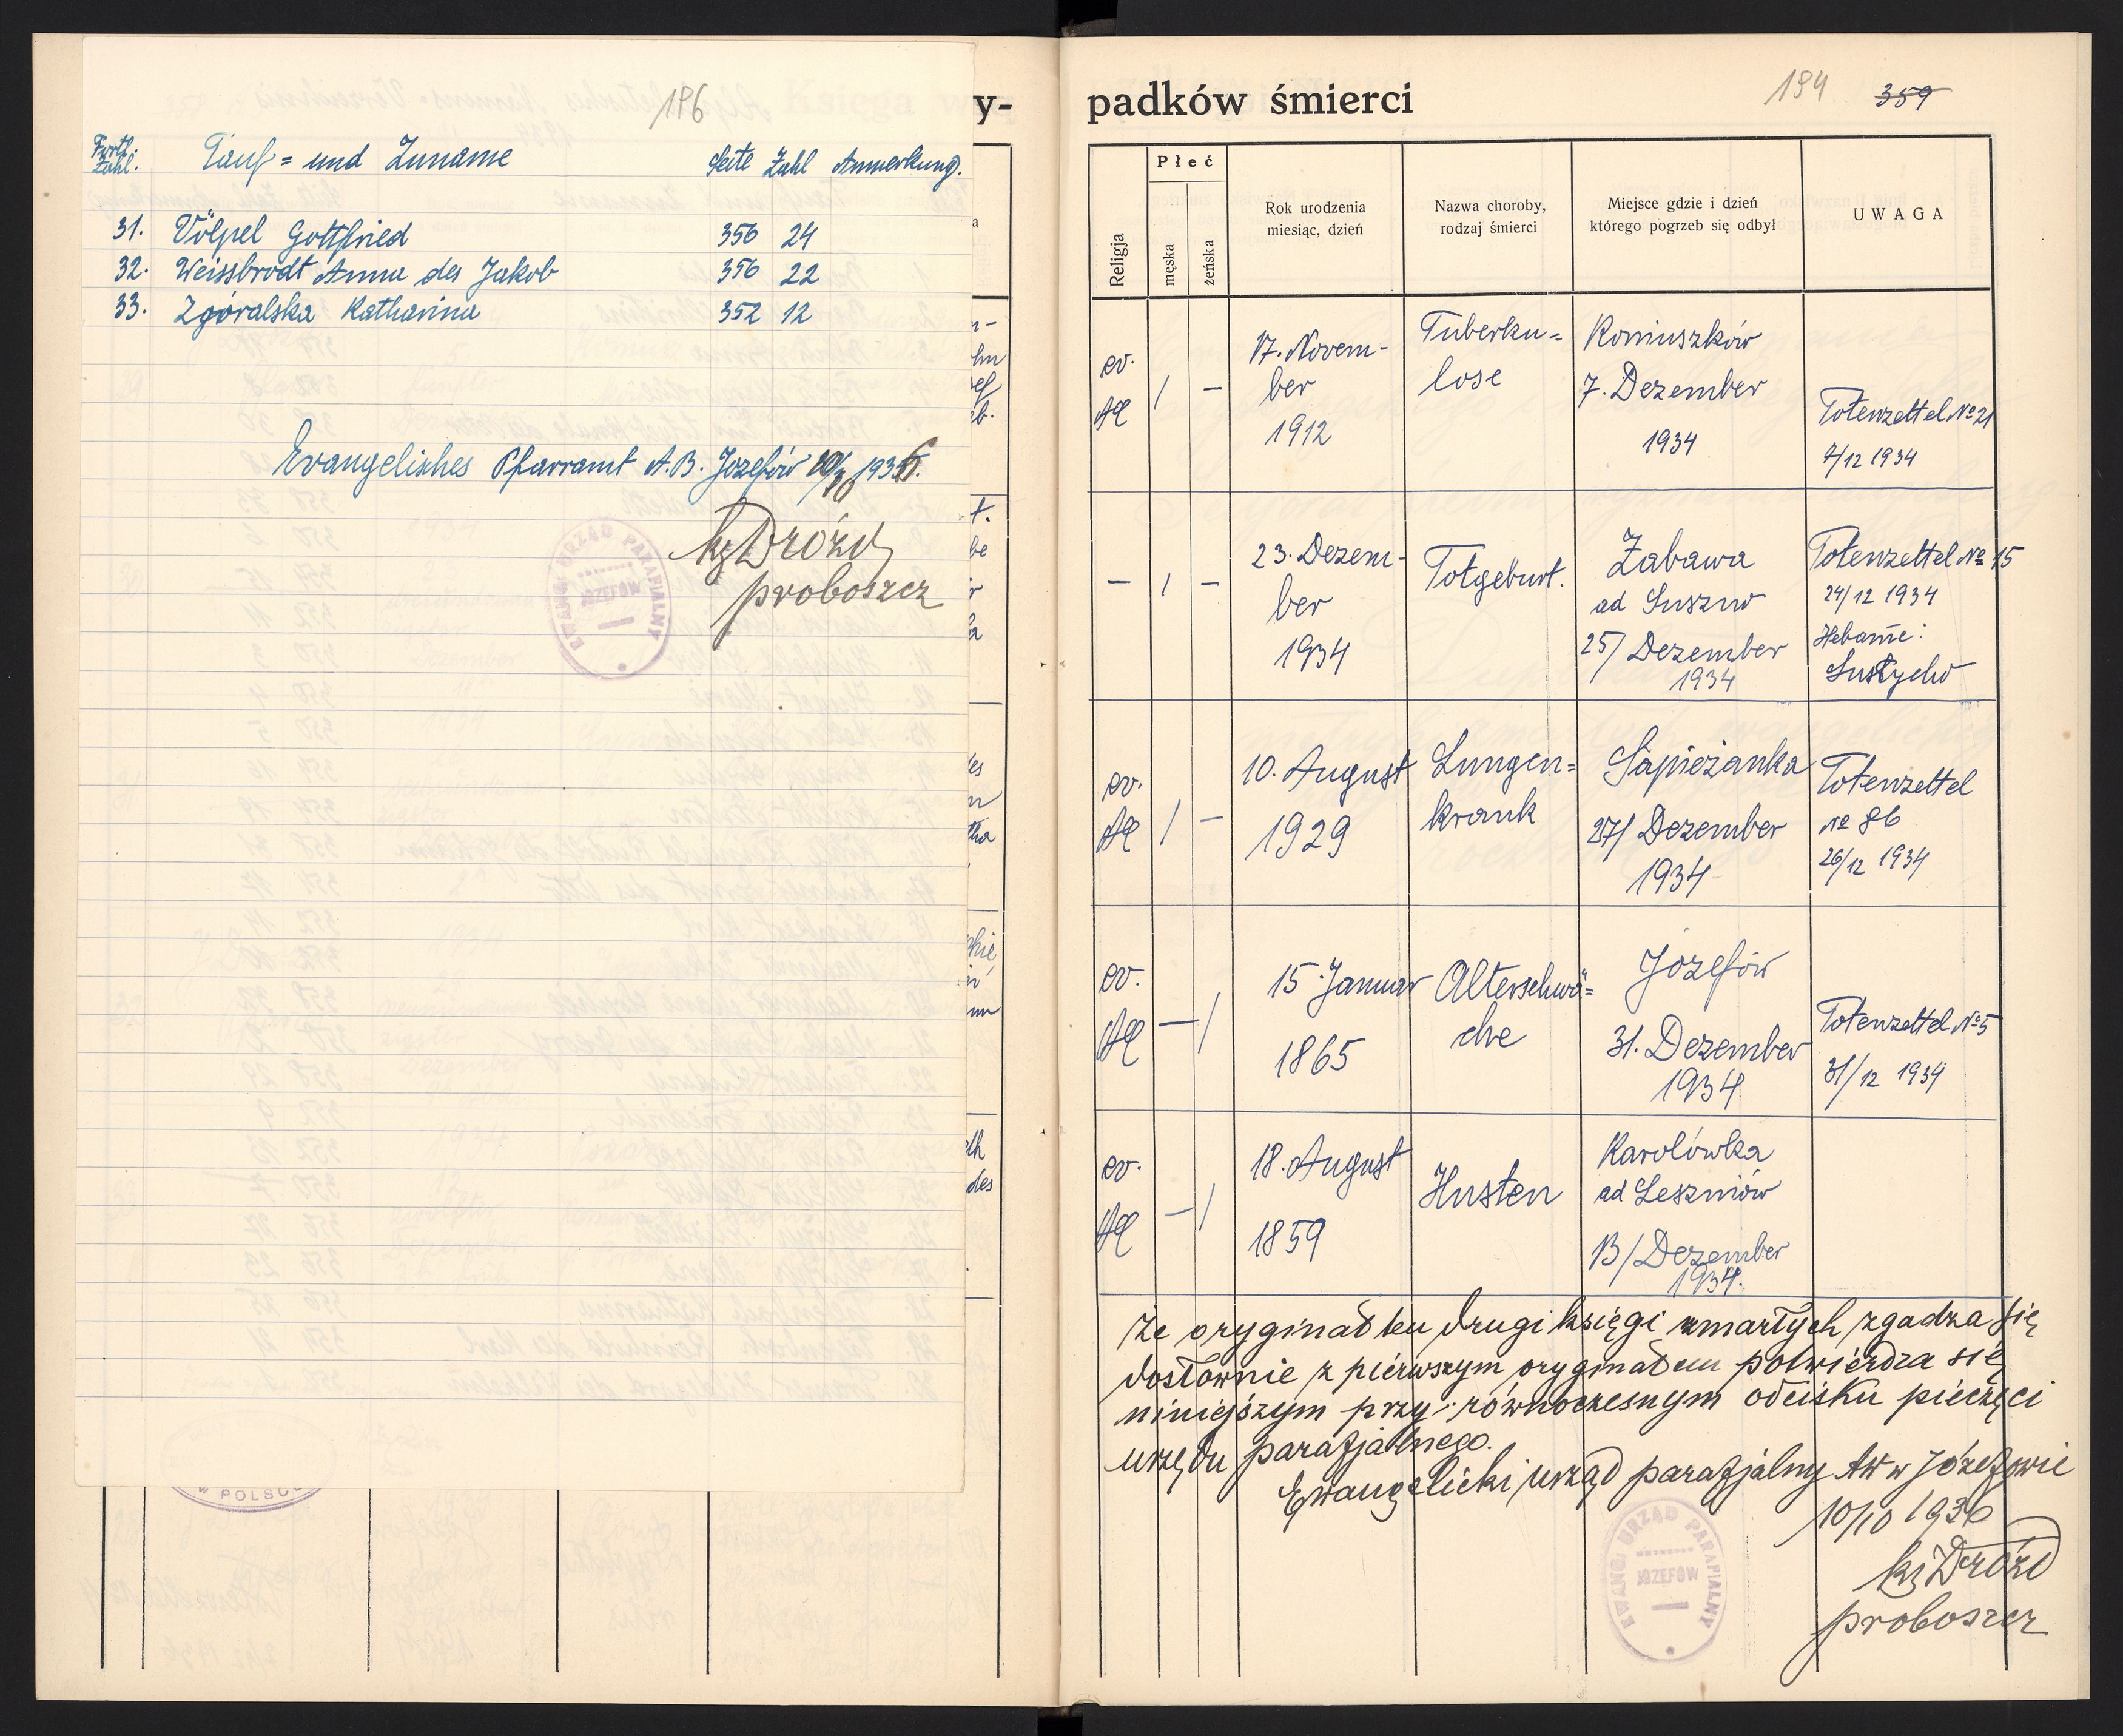 196
Fortl. Zahl. Tauf= und Zuname Seite Zahl Anmerkung.
31. Völpel Gottfried 356 24
32. Weissbrodt Anna des Jakob 356 22
33. Zgóralska Katharina 352 12
Evangelisches Pfarramt A.B. Józefów 10/10 1936.
ks Drózd
proboszcz
EWANG. URZĄD PARAFIALNY
JÓZEFÓW
W POLSCE
y-
padków śmierci
194 359
Religja
Płeć
męska
żeńska
Rok urodzenia
miesiąc, dzień
Nazwa choroby,
rodzaj śmierci
Miejsce gdzie i dzień
którego pogrzeb się odbył
UWAGA
ev.
AC
/ –
17. Novem-
ber
1912
Tuberku=
lose
Koniuszków
7. Dezember
1934
Totenzettel No 21
7/12 1934
– / –
23. Dezem-
ber
1934
Totgeburt.
Zabawa
ad Suszno
25/ Dezember
1934
Totenzettel No 15
24/12 1934
Hebame:
ev.
AC
/ –
10. August
1929
Lungen=
krank
Sapieżanka
27/ Dezember
1934
Totenzettel
No 86
26/12 1934
ev.
AC
– /
15 Januar
1865
Alterschwä=
che
Józefów
31. Dezember
1934
Totenzettel No 5
31/12 1934
ev.
AC
– /
18. August
1859
Husten
Karolówka
ad Leszniów
13/ Dezember
1934.
Że oryginał ten drugi księgi zmarłych zgadza się
dosłownie z pierwszym oryginałem potwierdza się
niniejszym przy równoczesnym odcisku pieczęci
urzędu parafjalnego.
Ewangelicki urząd parafjalny AW w Józefowie
10/10 1936
ks Drózd
proboszcz
EWANG. URZĄD PARAFIALNY
JÓZEFÓW